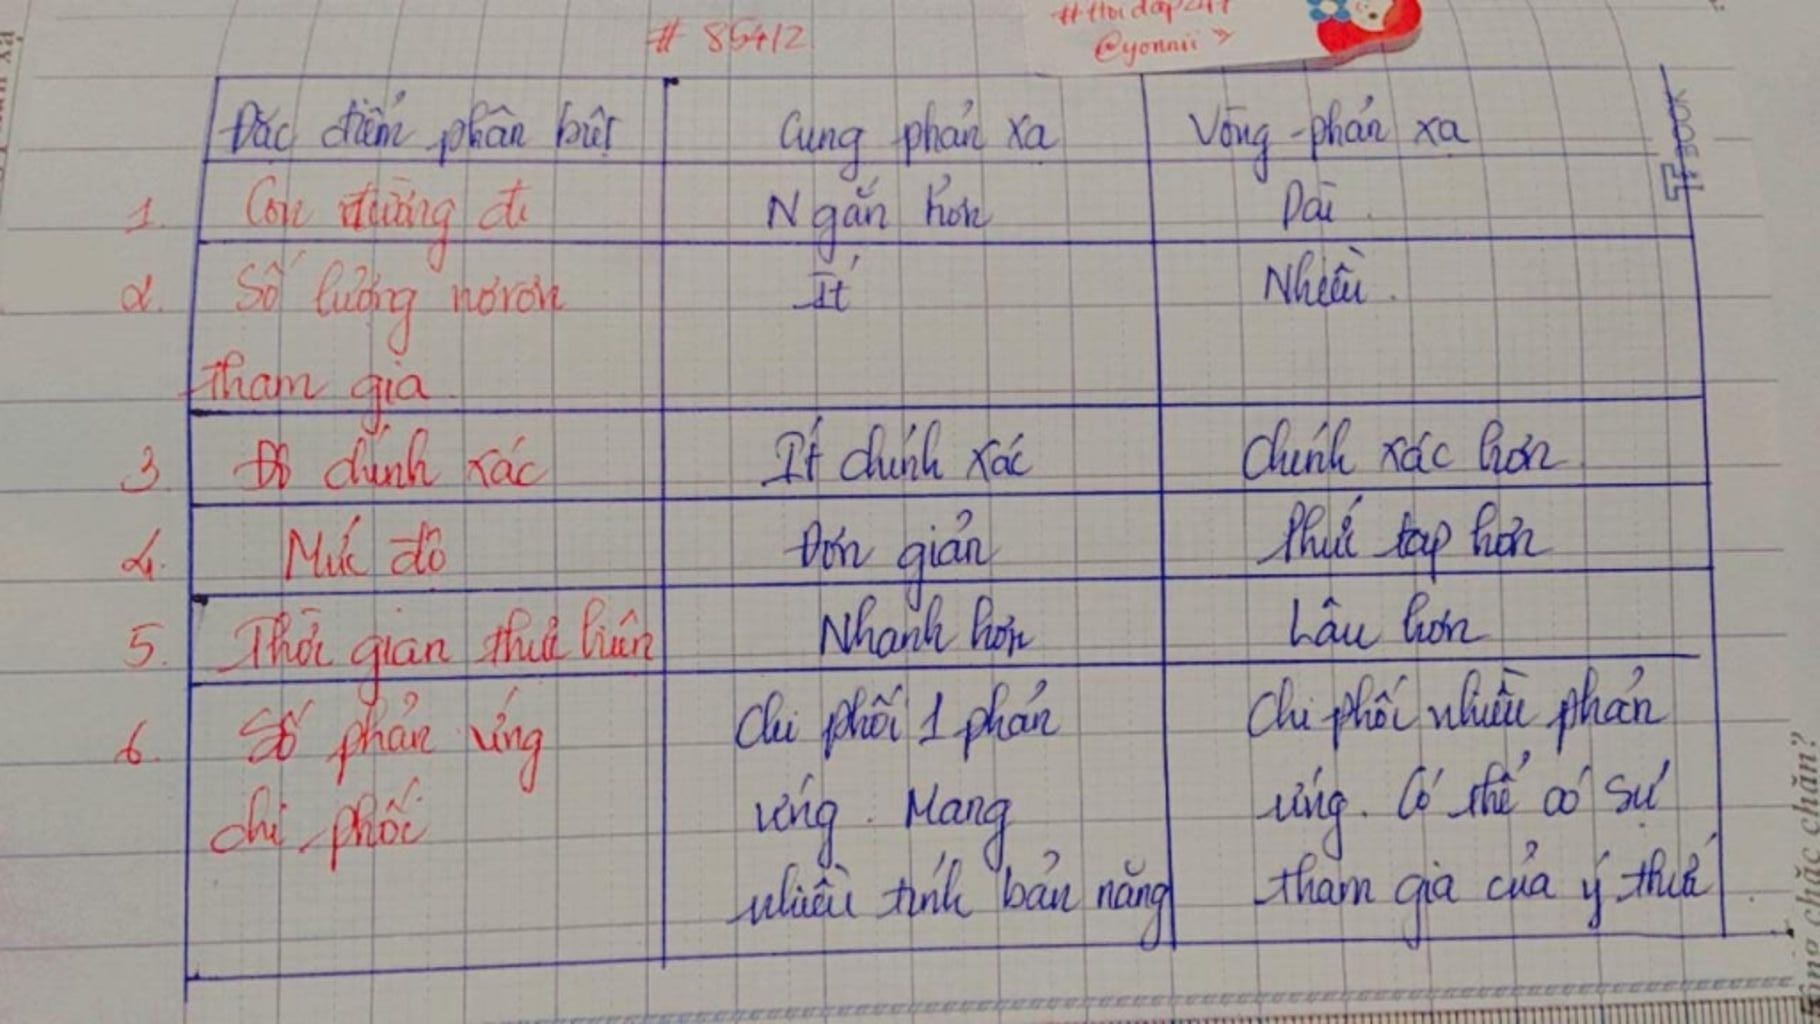 #Hoidap247
# 85412
@yonnii
Đặc điểm phân biệt Cung phản xạ Vòng phản xạ
1. Con đường đi Ngắn hơn Dài
2. Số lượng nơron Ít Nhiều.
tham gia
3. Độ chính xác Ít chính xác Chính xác hơn
4. Mức độ Đơn giản Phức tạp hơn
5. Thời gian thực hiện Nhanh hơn Lâu hơn
6. Số phản ứng Chi phối 1 phản Chi phối nhiều phản
chi phối ứng. Mang ứng. Có thể có sự
nhiều tính bản năng tham gia của ý thức
chắc chắn?